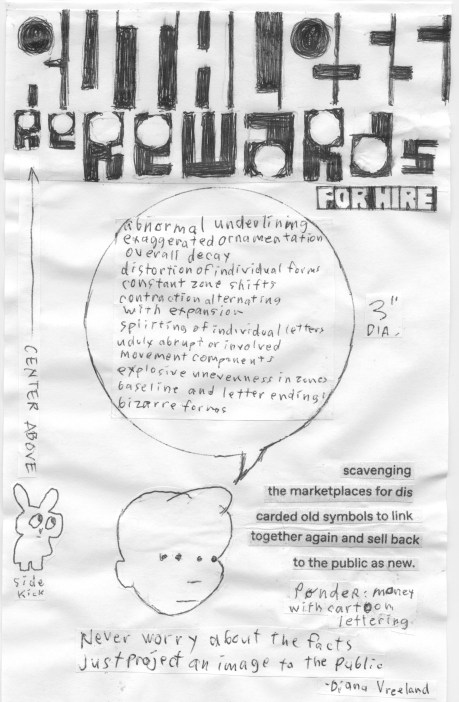 REWARDS
FOR HIRE
abnormal underlining
exaggerated ornamentation
overall decay
distortion of individual forms
constant zone shifts
contraction alternating
with expansion
splitting of individual letters
uduly abrupt or involved
movement components
explosive unevenness in zones
baseline and letter endings
bizarre forms
3" DIA.
CENTER ABOVE
Side
Kick
scavenging
the marketplaces for dis
carded old symbols to link
together again and sell back
to the public as new.
Ponder: money
with cartoon
lettering
Never worry about the facts
Just project an image to the public
-Diana Vreeland